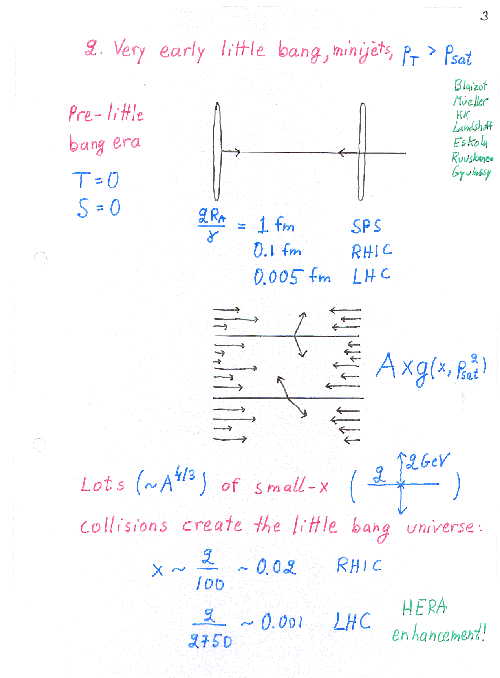 3
2. Very early little bang, minijets, p_T > p_sat
Blaizot
Mueller
KK
Landshoff
Eskola
Ruuskanen
Gyulassy
Pre-little
bang era
T=0
S=0
2R_A/γ = 1 fm SPS
0.1 fm RHIC
0.005 fm LHC
A x g(x, p_sat^2)
Lots (~A^4/3) of small-x ( 2 2 GeV )
collisions create the little bang universe:
x ~ 2/100 ~ 0.02 RHIC
2/2750 ~ 0.001 LHC
HERA
enhancement!